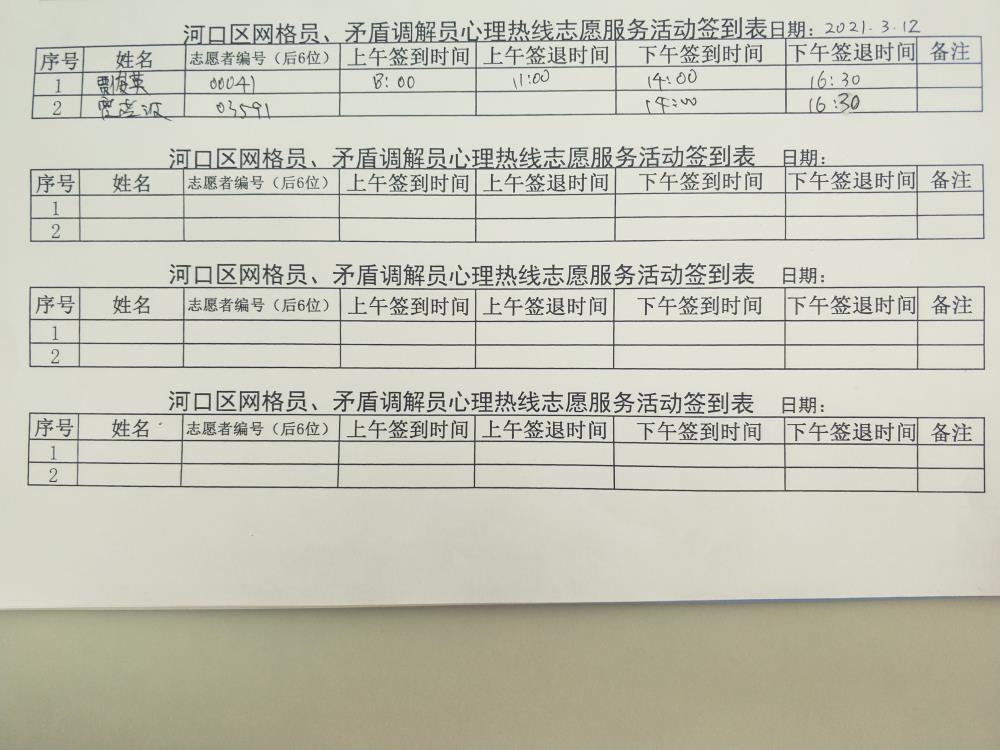 河口区网格员、矛盾调解员心理热线志愿服务活动签到表日期：2021.3.12
序号 姓名 志愿者编号（后6位） 上午签到时间 上午签退时间 下午签到时间 下午签退时间 备注
1 贾俊英 00041 8:00 11:00 14:00 16:30
2 03591 14:00 16:30
河口区网格员、矛盾调解员心理热线志愿服务活动签到表 日期：
序号 姓名 志愿者编号（后6位） 上午签到时间 上午签退时间 下午签到时间 下午签退时间 备注
1
2
河口区网格员、矛盾调解员心理热线志愿服务活动签到表 日期：
序号 姓名 志愿者编号（后6位） 上午签到时间 上午签退时间 下午签到时间 下午签退时间 备注
1
2
河口区网格员、矛盾调解员心理热线志愿服务活动签到表 日期：
序号 姓名 志愿者编号（后6位） 上午签到时间 上午签退时间 下午签到时间 下午签退时间 备注
1
2